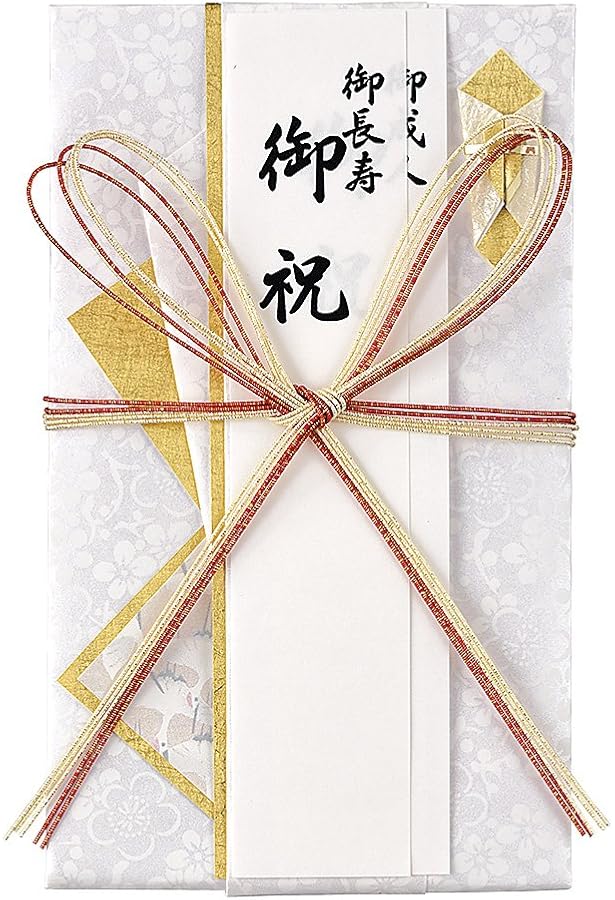 御成人
御長寿
御祝